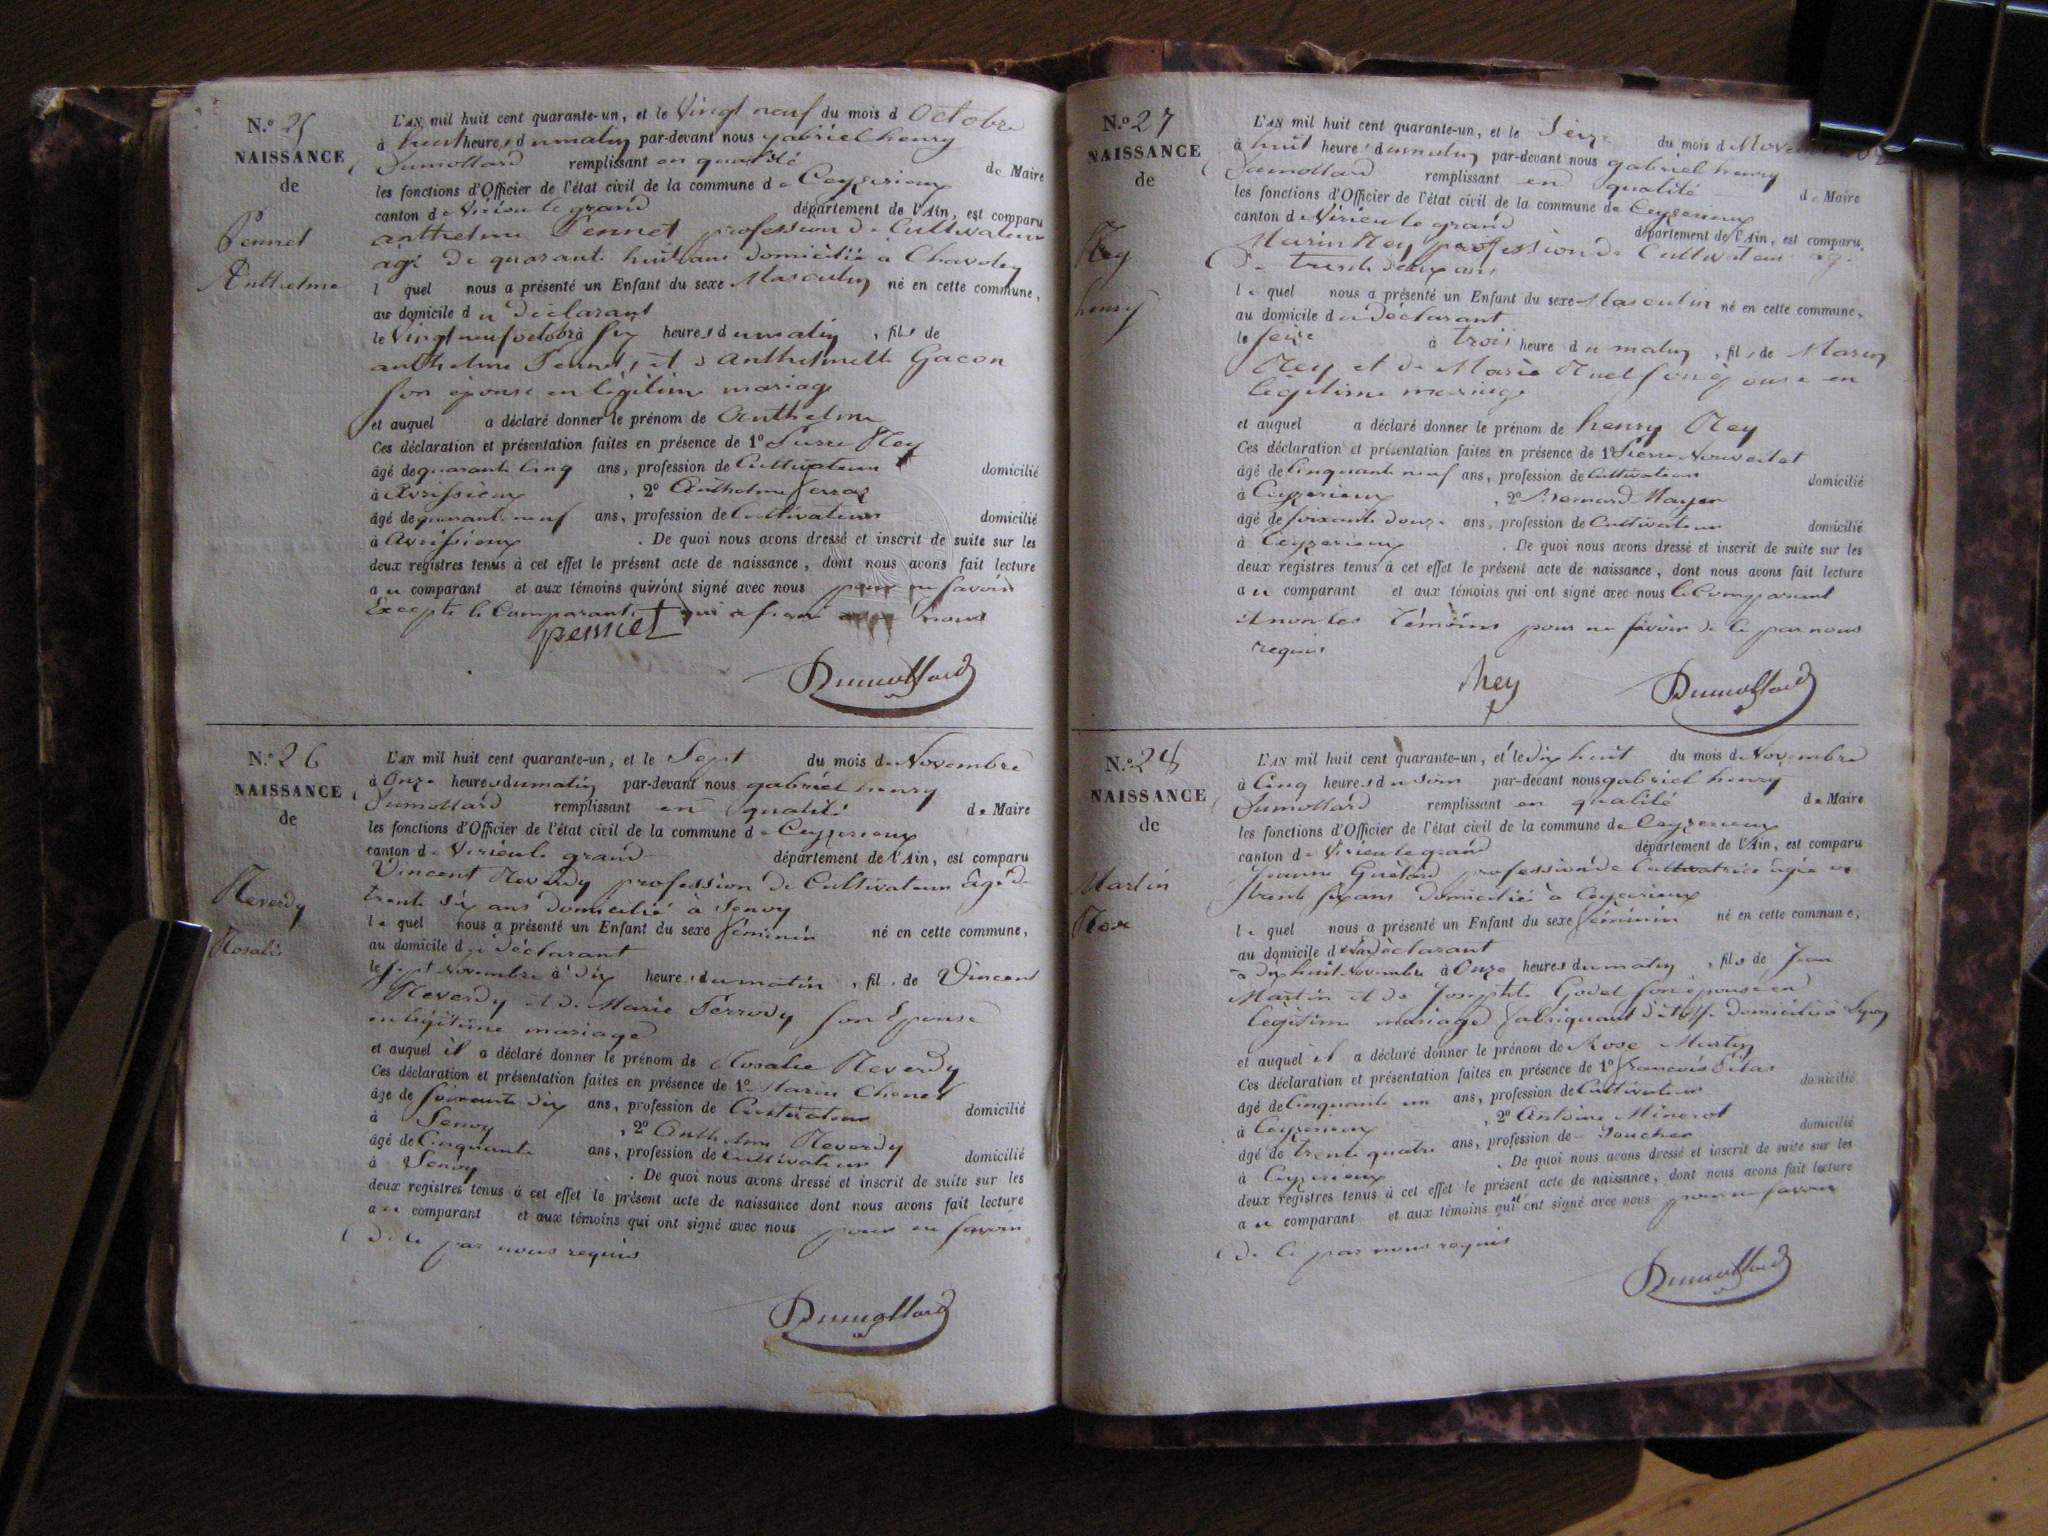 N.º 25
NAISSANCE
de
Pennet
Anthelme
L'AN mil huit cent quarante-un, et le Vingt neuf du mois d Octobre
à huit heures du matin par-devant nous gabriel henry
Dumollard remplissant en qualité de Maire
les fonctions d'Officier de l'état civil de la commune de Ceyzerieux
canton de Virieu le grand département de l'Ain, est comparu
anthelme Pennet profession de Cultivateur
agé de quarante huit ans domicilié à Chavoley
l quel nous a présenté un Enfant du sexe Masculin né en cette commune,
au domicile du déclarant
le Vingt neuf octobre à six heures du matin, fils de
anthelme Pennet et d anthelmette Gacon
son épouse en légitime mariage
et auquel a déclaré donner le prénom de Anthelme
Ces déclaration et présentation faites en présence de 1º Pierre Rey
âgé de quarante Cinq ans, profession de Cultivateur domicilié
à Avrissieux, 2º Anthelme
âgé de quarante neuf ans, profession de Cultivateur domicilié
à Avrissieux. De quoi nous avons dressé et inscrit de suite sur les
deux registres tenus à cet effet le présent acte de naissance, dont nous avons fait lecture
au comparant et aux témoins qui n'ont signé avec nous pour ne savoir
Excepté le Comparant qui a signé avec nous
pennet
Dumollard
N.º 26
NAISSANCE
de
Reverdy
Rosalie
L'AN mil huit cent quarante-un, et le Sept du mois de Novembre
à Onze heures du matin par-devant nous gabriel henry
Dumollard remplissant en qualité de Maire
les fonctions d'Officier de l'état civil de la commune de Ceyzerieux
canton de Virieu le grand département de l'Ain, est comparu
Vincent Reverdy profession de Cultivateur âgé de
trente six ans domicilié à Senoy
le quel nous a présenté un Enfant du sexe féminin né en cette commune,
au domicile du déclarant
le sept Novembre à dix heures du matin, fil de Vincent
Reverdy et de Marie Perrody son Epouse
en légitime mariage
et auquel il a déclaré donner le prénom de Rosalie Reverdy
Ces déclaration et présentation faites en présence de 1º Marin Chenet
âgé de soixante dix ans, profession de Cultivateur domicilié
à Senoy, 2º Anthelme Reverdy
âgé de Cinquante ans, profession de Cultivateur domicilié
à Senoy. De quoi nous avons dressé et inscrit de suite sur les
deux registres tenus à cet effet le présent acte de naissance dont nous avons fait lecture
au comparant et aux témoins qui ont signé avec nous pour ne savoir
de ce par nous requis
Dumollard
N.º 27
NAISSANCE
de
Rey
henry
L'AN mil huit cent quarante-un, et le Seize du mois de Novembre
à huit heures du matin par-devant nous gabriel henry
Dumollard remplissant en qualité de Maire
les fonctions d'Officier de l'état civil de la commune de Ceyzerieux
canton de Virieu le grand département de l'Ain, est comparu
Marin Rey profession de Cultivateur agé
de trente deux ans
le quel nous a présenté un Enfant du sexe Masculin né en cette commune,
au domicile du déclarant
le seize à trois heure du matin, fils de Marin
Rey et de Marie Ruel son épouse en
légitime mariage
et auquel a déclaré donner le prénom de henry Rey
Ces déclaration et présentation faites en présence de 1º Pierre
âgé de Cinquante neuf ans, profession de Cultivateur domicilié
à Ceyzerieux, 2º Bernard Mayer
âgé de soixante douze ans, profession de Cultivateur domicilié
à Ceyzerieux. De quoi nous avons dressé et inscrit de suite sur les
deux registres tenus à cet effet le présent acte de naissance, dont nous avons fait lecture
au comparant et aux témoins qui ont signé avec nous le Comparant
et non les Témoins pour ne savoir de ce par nous
requis
Rey
Dumollard
N.º 28
NAISSANCE
de
Martin
Rose
L'AN mil huit cent quarante-un, et le dix huit du mois de Novembre
à Cinq heures du soir par-devant nous gabriel henry
Dumollard remplissant en qualité de Maire
les fonctions d'Officier de l'état civil de la commune de Ceyzerieux
canton de Virieu le grand département de l'Ain, est comparu
Jeanne profession de Cultivatrice âgée de
trente six ans domicilié à Ceyzerieux
le quel nous a présenté un Enfant du sexe féminin né en cette commune,
au domicile de la déclarant
le dix huit Novembre à Onze heures du matin, fils de Jean
Martin et de Josephte Godet son épouse en
légitime mariage fabriquant d'étoffe domicilié à Lyon
et auquel il a déclaré donner le prénom de Rose Martin
Ces déclaration et présentation faites en présence de 1º francois
âgé de Cinquante un ans, profession de Cultivateur domicilié
à Ceyzerieux, 2º Antoine Minerot
âgé de trente quatre ans, profession de domicilié
à Ceyzerieux. De quoi nous avons dressé et inscrit de suite sur les
deux registres tenus à cet effet le présent acte de naissance, dont nous avons fait lecture
au comparant et aux témoins qui ont signé avec nous pour ne savoir
de ce par nous requis
Dumollard